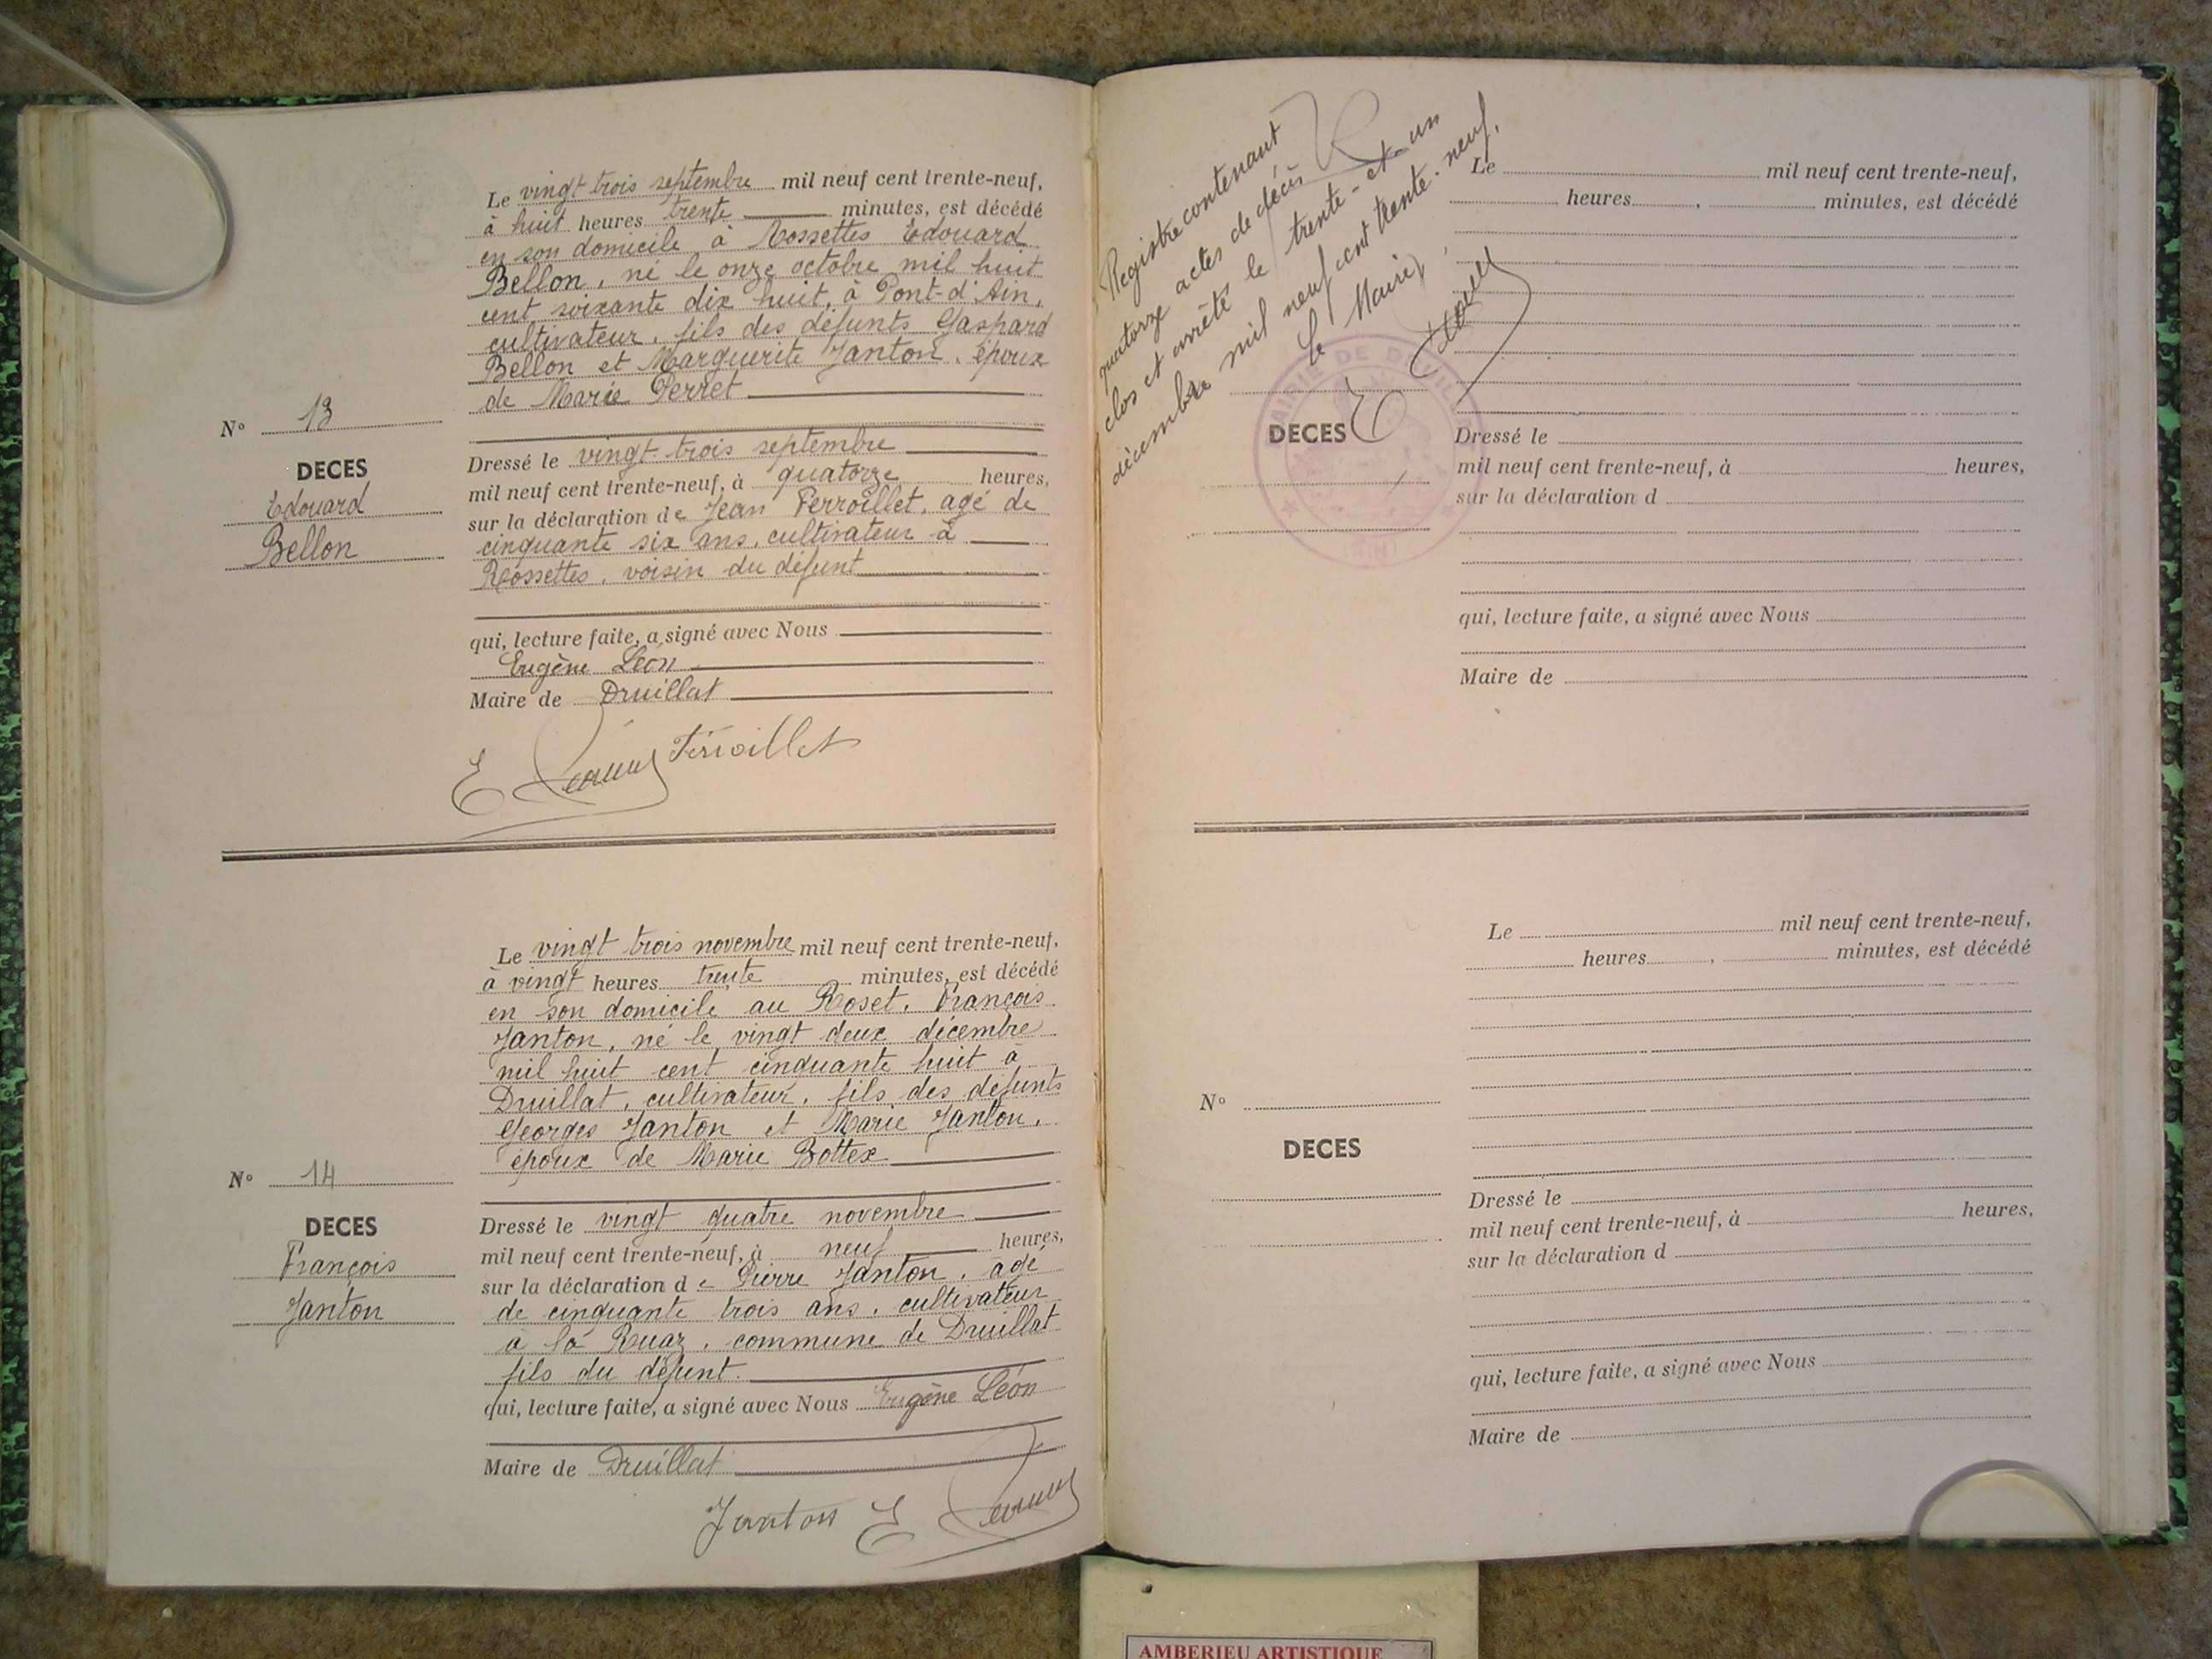 Le vingt trois septembre mil neuf cent trente-neuf,
à huit heures trente minutes, est décédé
en son domicile à Rossettes Edouard
Bellon, né le onze octobre mil huit
cent soixante dix huit, à Pont-d'Ain,
cultivateur, fils des défunts Gaspard
Bellon et Marguerite Janton, époux
de Marie Perret
N° 13
DECES
Edouard
Bellon
Dressé le vingt-trois septembre
mil neuf cent trente-neuf, à quatorze heures,
sur la déclaration de Jean Perroillet, agé de
cinquante six ans, cultivateur à
Rossettes, voisin du défunt
qui, lecture faite, a signé avec Nous
Eugène Léon
Maire de Druillat
E
Le vingt trois novembre mil neuf cent trente-neuf,
à vingt heures trente minutes, est décédé
en son domicile au Roset, François
Janton, né le vingt deux décembre
mil huit cent cinquante huit à
Druillat, cultivateur, fils des défunts
Georges Janton et Marie Janton,
époux de Marie Bottex
N° 14
DECES
François
Janton
Dressé le vingt quatre novembre
mil neuf cent trente-neuf, à neuf heures,
sur la déclaration de Pierre Janton, agé
de cinquante trois ans, cultivateur
à la Ruaz, commune de Druillat
fils du défunt.
qui, lecture faite, a signé avec Nous Eugène Léon
Maire de Druillat
Janton E
Registre contenant
quatorze actes de décès
clos et arrêté le trente-et-un
décembre mil neuf cent trente-neuf.
Le Maire,
MAIRIE DE
(AIN)
Le mil neuf cent trente-neuf,
heures, minutes, est décédé
DECES
Dressé le
mil neuf cent trente-neuf, à heures,
sur la déclaration d
qui, lecture faite, a signé avec Nous
Maire de
Le mil neuf cent trente-neuf,
heures, minutes, est décédé
N°
DECES
Dressé le
mil neuf cent trente-neuf, à heures,
sur la déclaration d
qui, lecture faite, a signé avec Nous
Maire de
AMBERIEU ARTISTIQUE